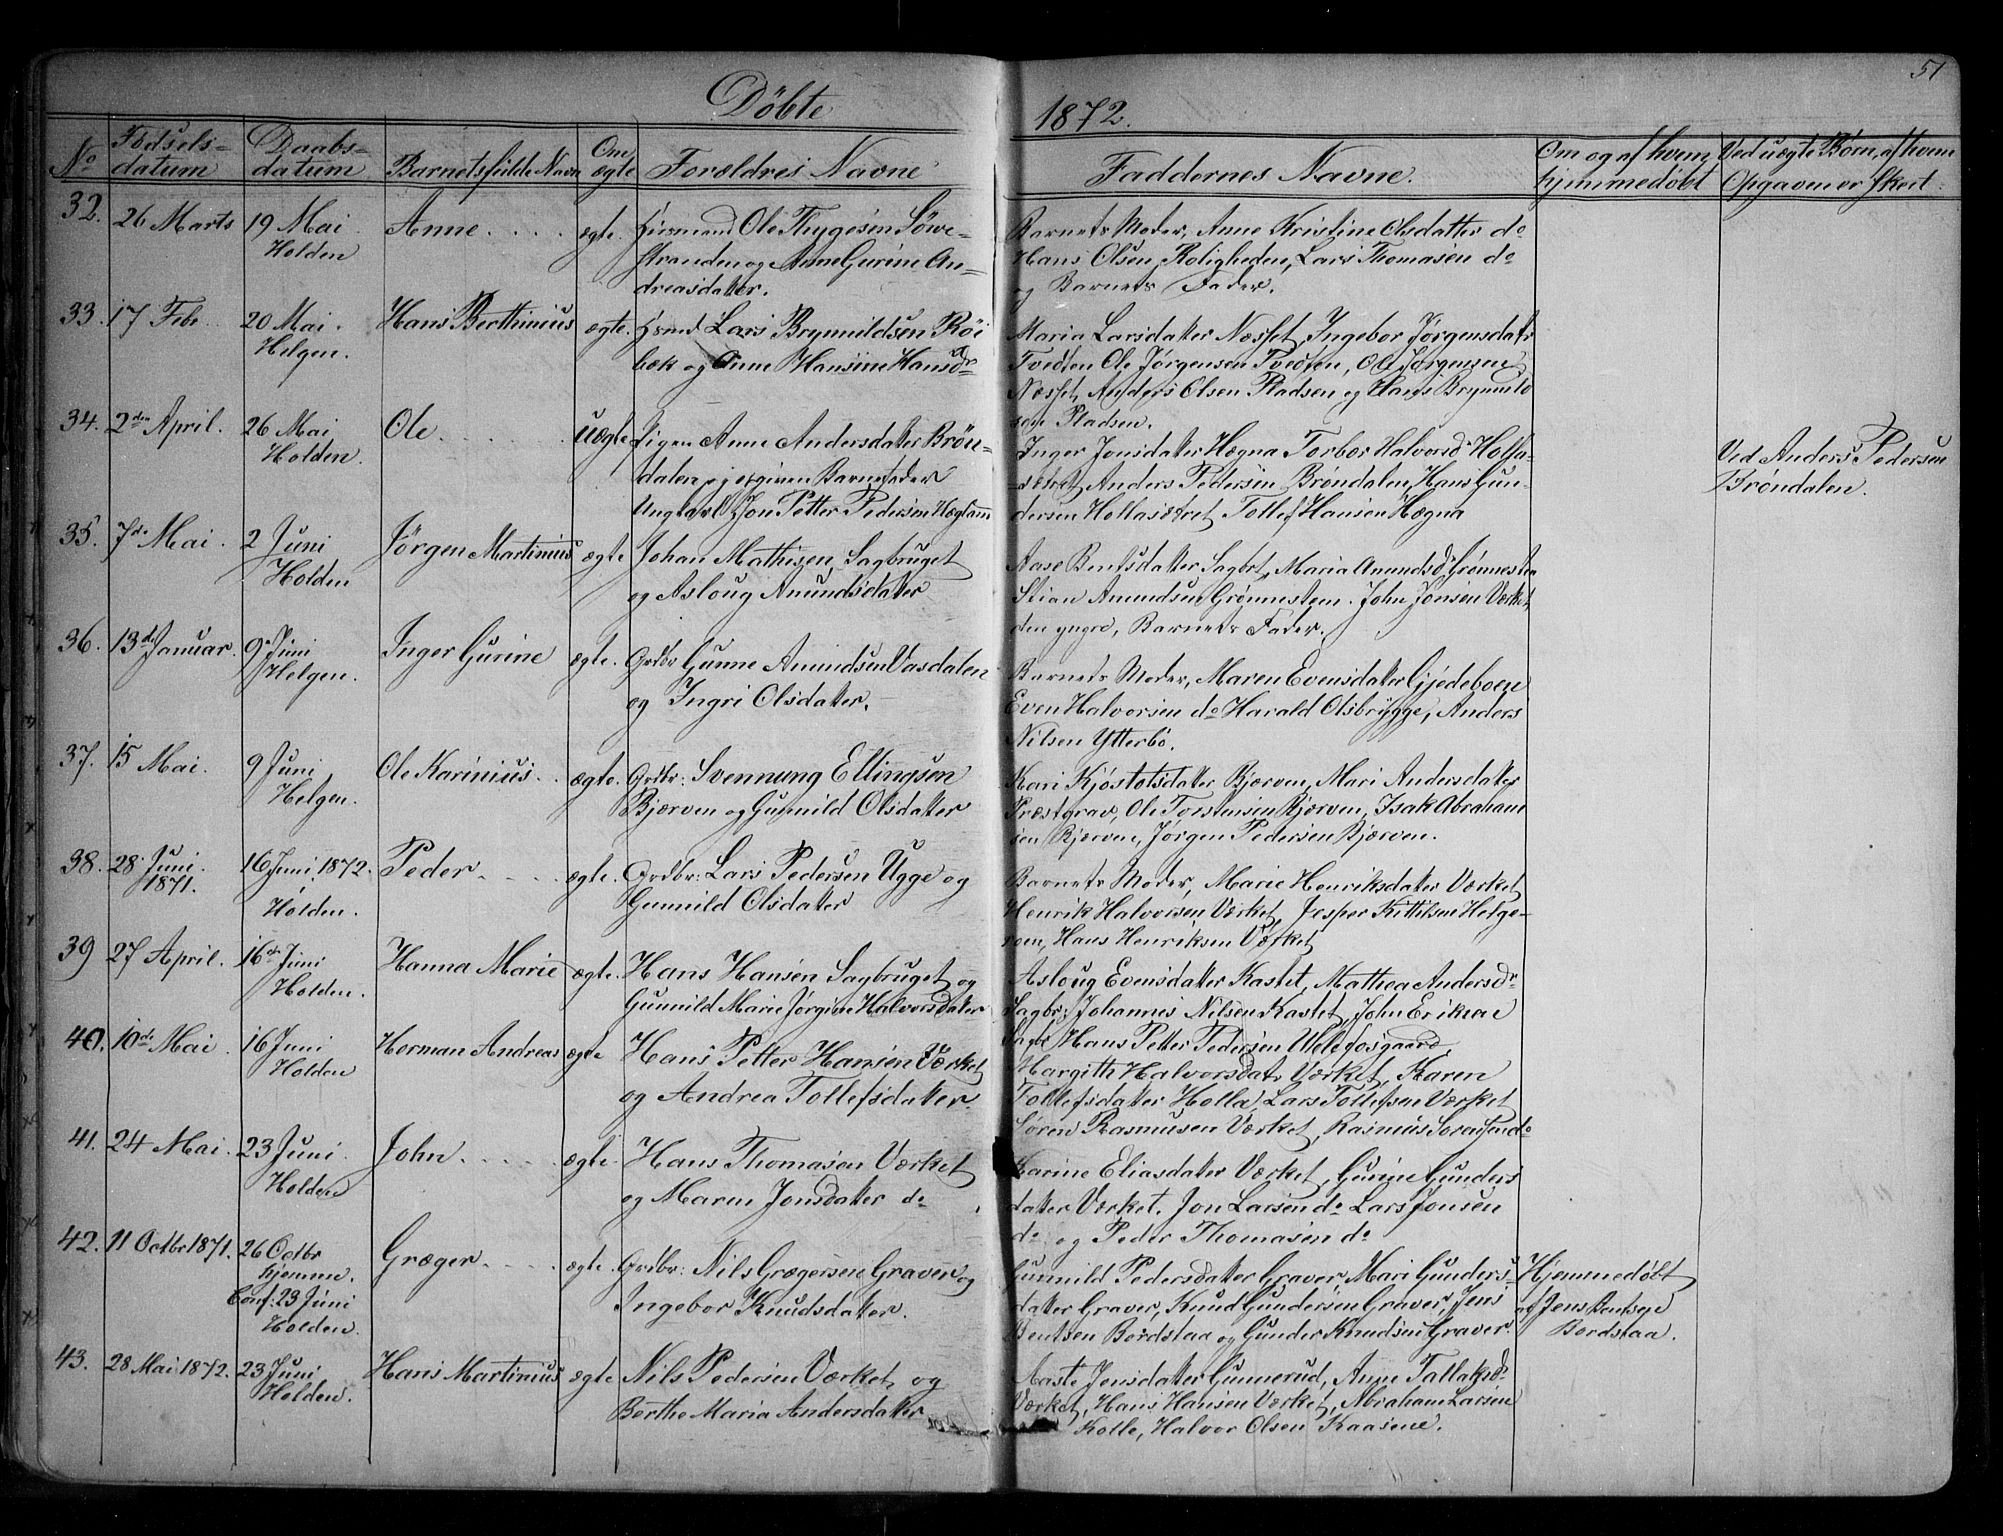 51
Döbte 1872.
No
Födsels-
datum
Daabs-
datum
Barnets fulde Navn
Om
ægte
Forældres Navne
Faddernes Navne.
Om og af hvem
hjemmedöbt
Ved uægte Börn, af hvem
Opgaven er skeet.
32. 26 Marts 19 Mai Anne. ægte. Huusmand Ole Thygesen Löwe-
Holden stranden og Anne Gurine An-
dreasdatter.
Barnets Moder, Anne Kristine Olsdatter do
Hans Olsen Roligheden, Lars Thomasen do
og Barnets Fader.
33. 17 Febr. 20 Mai. Hans Berthinius ægte. Hsmd Lars Brynnildsen Röi
Helgen. bæk og Anne Hansine Hansdr
Maria Larsdatter Næsset, Ingebor Jørgensdatr
Tvedten Ole Jørgensen Tvedten, Ole Jørgensen
Næsset, Anders Olsen Pladsen og Hans Brynnild
sen Pladsen.
34. 2den April. 26 Mai Ole. uægte Pigen Anne Andersdatter Brön-
Holden. dalen, opgiven Barnefader
Ungkarl Jon Petter Pedersen
Inger Jonsdatter Hægna Torbor Halvorsd Holla-
sætret Anders Pedersen Bröndalen, Hans Gun-
dersen Hollasætret Tollef Hansen Hægna
Ved Anders Pedersen
Bröndalen.
35. 7de Mai. 2 Juni Jörgen Martinius ægte Johan Mathisen Sagbruget
Holden og Asloug Amundsdatter
Aase Bentsdatter Sagbr, Maria Amundsdr Grönnesten
Stian Amundsen Grönnestem. John Jonsen Værket
den yngre, Barnets Fader.
36. 13de Januar. 9 Juni Inger Gurine ægte. Grdbr Gunne Amundsen Vasdalen
Helgen. og Ingri Olsdatter.
Barnets Moder, Maren Evensdatter Gjedeboen
Even Halvorsen do Harald Olsbrygge, Anders
Nilsen Ytterbö.
37. 15 Mai. 9 Juni Ole Karinius. ægte. Grdbr: Svennung Ellingsen
Helgen. Bjerven og Gunnild Olsdatter
Kari Kjöstolsdatter Bjærven, Mari Andersdatter
Præstgrav, Ole Torstensen Bjærven, Isak Abraham
sen Bjerven, Jörgen Pedersen Bjerven.
38. 28 Juni 16 Juni 1872. Peder. ægte. Grdbr: Lars Pedersen Ugge og
1871. Holden. Gunnild Olsdatter
Barnets Moder, Marie Henriksdatter Værket
Henrik Halvorsen Værket, Jesper Kittilsen Helge-
roen, Hans Henriksen Værket
39 27 April. 16de Juni Hanna Marie ægte. Hans Hansen Sagbruget og
Holden. Gunnild Marie Jørgine Halvorsdatter
Asloug Evensdatter Kastet, Mathea Andersdr
Sagbr, Johannis Nilsen Kastet, John Eriksen
Sagbr Hans Petter Pedersen Ulefosgaard.
40. 10de Mai. 16 Juni Herman Andreas ægte Hans Petter Hansen Værket
Holden og Andrea Tollefsdatter.
Margith Halvorsdatr Værket, Karen
Tollefsdatter Holla, Lars Tollefsen Værket
Sören Rasmusen Værket, Rasmus Sorensen do
41. 24 Mai. 23 Juni John. ægte. Hans Thomasen Værket
Holden og Maren Jonsdatter do
Karine Eliasdatter Værket, Gurine Gunders
datter Værket. Jon Larsen do Lars Jonsen
do og Peder Thomasen do
42. 11 Octbr 1871. 26 Octbr Græger. ægte. Grdbr: Nils Grægersen Graver og
hjemme. Ingebor Knudsdatter.
Conf: 23 Juni
Holden.
Gunnild Pedersdatter Graver, Mari Gunders-
datter Graver, Knud Gundersen Graver, Jens
Bentsen Bordstaa og Gunder Knudsen Graver.
Hjemmedöbt
af Jens Bentsen
Bordstaa.
43. 28 Mai 1872. 23 Juni Hans Martinius ægte Nils Pedersen Værket og
Holden. Berthe Maria Andersdatter
Aaste Jensdatter Gunnerud, Anne Tallaksdr
Værket, Hans Hansen Værket, Abraham Larsen
Kolle, Halvor Olsen Kaasene.